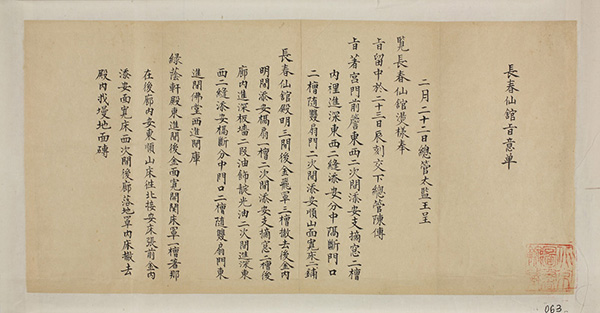 長春仙館旨意单
二月二十二日總管太監王呈
覧長春仙館燙樣奉
旨留中於二十三日辰刻交下總管陳傳
旨著宮門前簷東西二次間添安支摘窓二檀
内裡進深東西二縫添安分中隔斷門口
二檀隨雙扇門二次間添安順山面寛床二鋪
長春仙館殿明三間後金飛罩三檀撤去後金内
明間添安槅扇一檀二次間添安支摘窓二檀後
廊内進深板墙二段油飾靛光油二次間進深東
西二縫添安槅斷分中門口二檀隨雙扇門東
進間佛堂西進間庫
綠蔭軒殿東進間後金面寛閑床罩一檀著那
在後廊内安東順山床往北接安床張前金内
添安面寛床西次間後廊落地罩内床撤去
殿内找墁地面磚
063